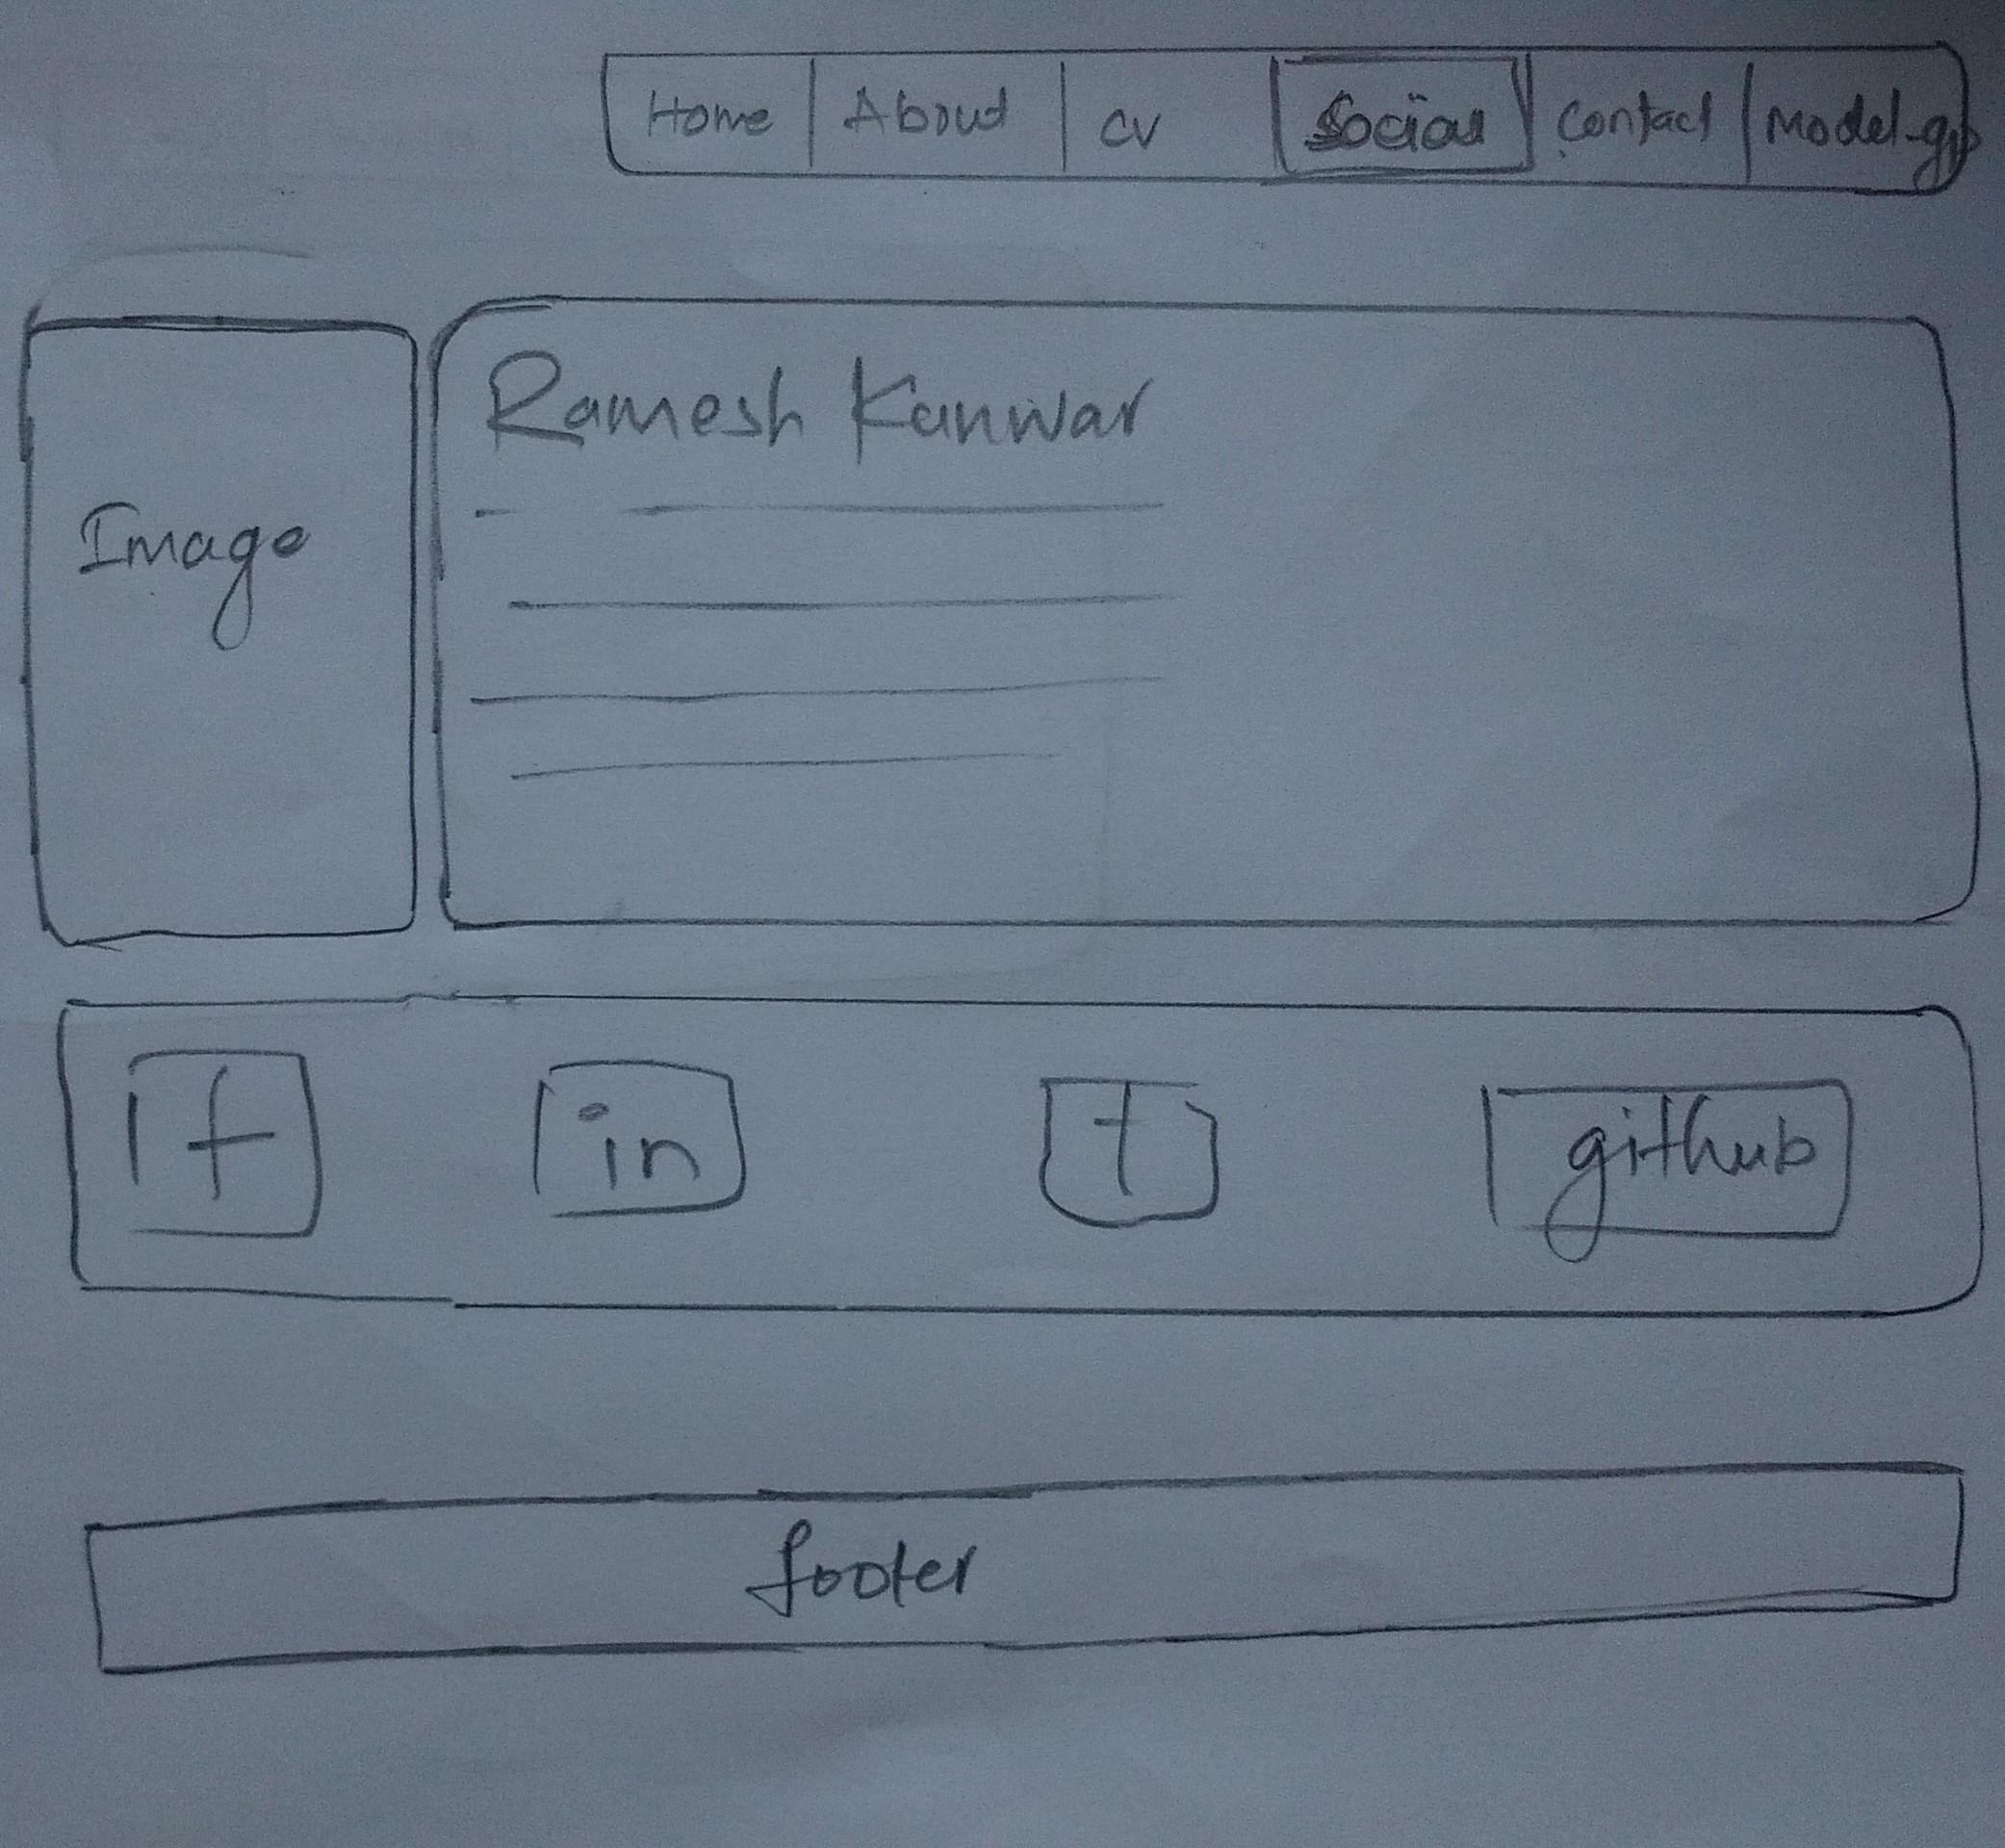 Home About CV Social Contact Model-gp
Ramesh Kanwar
Image
f in t github
footer